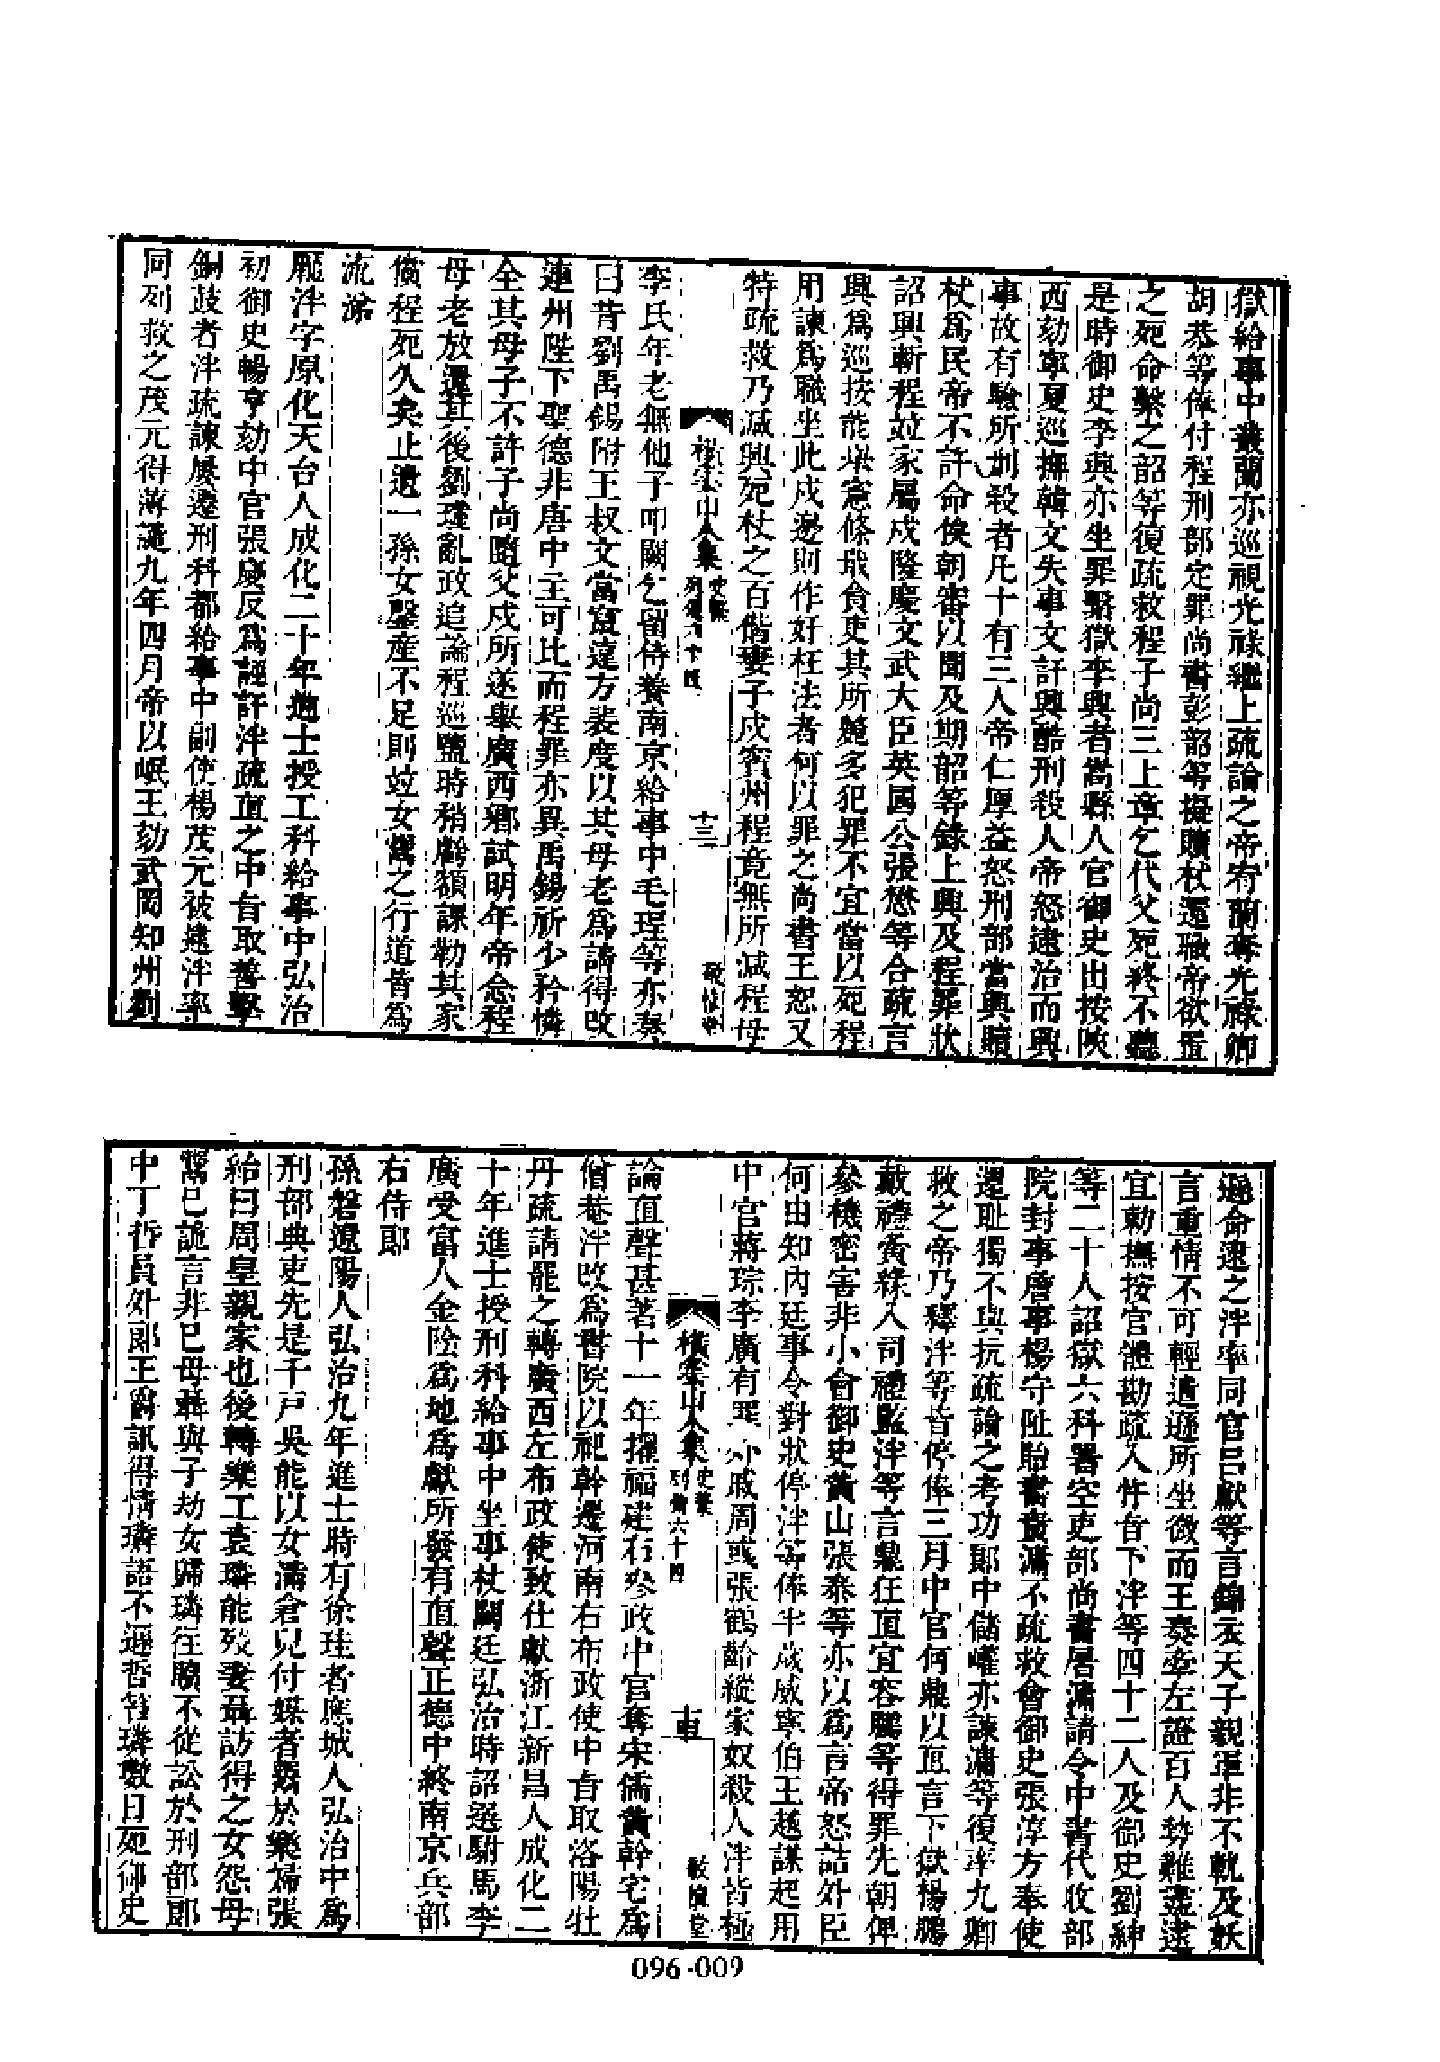 獄給事中叢蘭亦巡視光祿繼上疏論之帝宥蘭奪光祿卿
胡恭等俸付程刑部定罪尚書彭韶等擬贖杖還職帝欲置
之死命繫之韶等復疏救程子尚三上章乞代父死終不聽
是時御史李興亦坐罪繫獄李興者嵩縣人官御史出按陝
西劾寧夏巡撫韓文失事文訐興酷刑殺人帝怒逮治而興
事故有驗所刑殺者凡十有三人帝仁厚益怒刑部當興贖
杖爲民帝不許命俟朝審以聞及期韶等錄上興及程罪狀
詔興斬程竝家屬戍隆慶文武大臣英國公張懋等合疏言
興爲巡按能舉憲條戢貪吏其所麗多犯罪不宜當以死程
用諫爲職坐此戍邊則作奸枉法者何以罪之尚書王恕又
特疏救乃減興死杖之百偕妻子戍賓州程竟無所減程母
橫雲山人集 史藁 列傳六十四 十三 敬愼堂
李氏年老無他子叩闕乞留侍養南京給事中毛珵等亦奏
曰昔劉禹錫附王叔文當竄遠方裴度以其母老爲請得改
連州陛下聖德非唐中主可比而程罪亦異禹錫祈少矜憐
全其母子不許子尚隨父戍所遂舉廣西鄉試明年帝念程
母老放還其後劉瑾亂政追論程巡鹽時稍虧額課勒其家
償程死久矣止遺一孫女罄產不足則竝女鬻之行道皆爲
流涕
龐泮字原化天台人成化二十年進士授工科給事中弘治
初御史暢亨劾中官張慶反爲誣訐泮疏直之中旨取善擊
銅鼓者泮疏諫屢遷刑科都給事中副使楊茂元被逮泮率
同列救之茂元得薄譴九年四月帝以岷王劾武岡知州劉
遜命逮之泮率同官呂獻等言錦衣天子親軍非不軌及妖
言重情不可輕遣遜所坐微而王奏牽左證百人勢難盡逮
宜勅撫按官體勘疏入忤旨下泮等四十二人及御史劉紳
等二十人詔獄六科署空吏部尚書屠滽請令中書代收部
院封事詹事楊守阯貽書責滽不疏救會御史張淳方奉使
還恥獨不與抗疏論之考功郎中儲巏亦諫滽等復率九卿
救之帝乃釋泮等皆停俸三月中官何鼎以直言下獄楊鵬
戴禮夤緣入司禮監泮等言鼎狂直宜容鵬等得罪先朝俾
參機密害非小會御史黃山張泰等亦以爲言帝怒詰外臣
何由知內廷事令對狀停泮等俸半歲威寧伯王越謀起用
中官蔣琮李廣有罪外戚周彧張鶴齡縱家奴殺人泮皆極
橫雲山人集 史藁 列傳六十四 敬愼堂
論直聲甚著十一年擢福建右參政中官奪宋儒黃幹宅爲
僧菴泮改爲書院以祀幹遷河南右布政使中旨取洛陽牡
丹疏請罷之轉廣西左布政使致仕獻浙江新昌人成化二
十年進士授刑科給事中坐事杖闕廷弘治時詔選駙馬李
廣受富人金陰爲地爲獻所發有直聲正德中終南京兵部
右侍郎
孫磐遼陽人弘治九年進士時有徐珪者應城人弘治中爲
刑部典吏先是千戶吳能以女滿倉兒付媒者鬻於樂婦張
紿曰周皇親家也後轉樂工袁璘能歿妻聶訪得之女怨母
鬻己詭言非己母聶與子劫女歸璘往贖不從訟於刑部郎
中丁哲員外郎王爵訊得情璘語不遜哲笞璘數日死御史
096-009